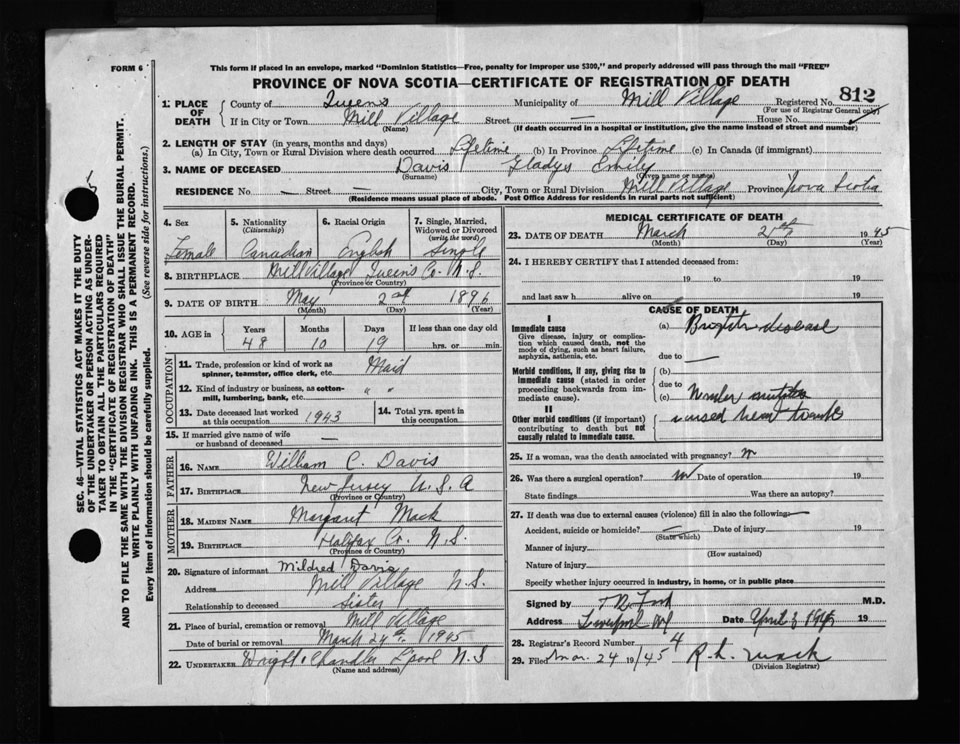 FORM 6
This form if placed in an envelope, marked "Dominion Statistics—Free, penalty for improper use $300," and properly addressed will pass through the mail "FREE"
PROVINCE OF NOVA SCOTIA—CERTIFICATE OF REGISTRATION OF DEATH
812
1. PLACE OF DEATH
County of Queens Municipality of Mill Village Registered No.
(For use of Registrar General only)
If in City or Town Mill Village Street — House No.
(Name) (If death occurred in a hospital or institution, give the name instead of street and number)
2. LENGTH OF STAY (in years, months and days)
(a) In City, Town or Rural Division where death occurred Lifetime (b) In Province Lifetime (c) In Canada (if immigrant)
3. NAME OF DECEASED Davis Gladys Emily
(Surname) (Given name or names)
RESIDENCE No — Street — City, Town or Rural Division Mill Village Province Nova Scotia
(Residence means usual place of abode. Post Office Address for residents in rural parts not sufficient)
4. Sex
Female
5. Nationality
(Citizenship)
Canadian
6. Racial Origin
English
7. Single, Married, Widowed or Divorced
(write the word)
Single
8. BIRTHPLACE Mill Village Queens Co. N.S.
(Province or Country)
9. DATE OF BIRTH May 2nd 1896
(Month) (Day) (Year)
10. AGE in
Years Months Days If less than one day old
48 10 19 hrs. or min.
OCCUPATION
11. Trade, profession or kind of work as Maid
spinner, teamster, office clerk, etc.
12. Kind of industry or business, as cotton-mill, lumbering, bank, etc. " "
13. Date deceased last worked at this occupation 1943
14. Total yrs. spent in this occupation
15. If married give name of wife or husband of deceased —
FATHER
16. NAME William C. Davis
17. BIRTHPLACE New Jersey U.S.A
(Province or Country)
MOTHER
18. MAIDEN NAME Margaret Mack
19. BIRTHPLACE Halifax Co. N.S.
(Province or Country)
20. Signature of informant Mildred Davis
Address Mill Village N.S.
Relationship to deceased Sister
21. Place of burial, cremation or removal Mill Village
Date of burial or removal March 24th 1945
22. UNDERTAKER Wright & Chandler L'pool N.S
(Name and address)
MEDICAL CERTIFICATE OF DEATH
23. DATE OF DEATH March 21st 1945
(Month) (Day) (Year)
24. I HEREBY CERTIFY that I attended deceased from:
19 to 19
and last saw h alive on 19
CAUSE OF DEATH
I
Immediate cause
Give disease, injury or complication which caused death, not the mode of dying, such as heart failure, asphyxia, asthenia, etc.
(a) Brights disease
due to —
Morbid conditions, if any, giving rise to immediate cause (stated in order proceeding backwards from immediate cause).
(b)
due to
(c)
II
Other morbid conditions (if important) contributing to death but not causally related to immediate cause.
25. If a woman, was the death associated with pregnancy?
26. Was there a surgical operation? Date of operation 19
State findings Was there an autopsy?
27. If death was due to external causes (violence) fill in also the following—
Accident, suicide or homicide? — Date of injury 19
(State which)
Manner of injury
(How sustained)
Nature of injury
Specify whether injury occurred in industry, in home, or in public place
Signed by M.D.
Address Liverpool NS Date April 3 1945 19
28. Registrar's Record Number 4
29. Filed Mar. 24 19/45 R. L. Mack
(Division Registrar)
SEC. 46—VITAL STATISTICS ACT MAKES IT THE DUTY
OF THE UNDERTAKER OR PERSON ACTING AS UNDER-
TAKER TO OBTAIN ALL THE PARTICULARS REQUIRED
IN THE "CERTIFICATE OF REGISTRATION OF DEATH"
AND TO FILE THE SAME WITH THE DIVISION REGISTRAR WHO SHALL ISSUE THE BURIAL PERMIT.
WRITE PLAINLY WITH UNFADING INK. THIS IS A PERMANENT RECORD.
Every item of information should be carefully supplied. (See reverse side for instructions.)